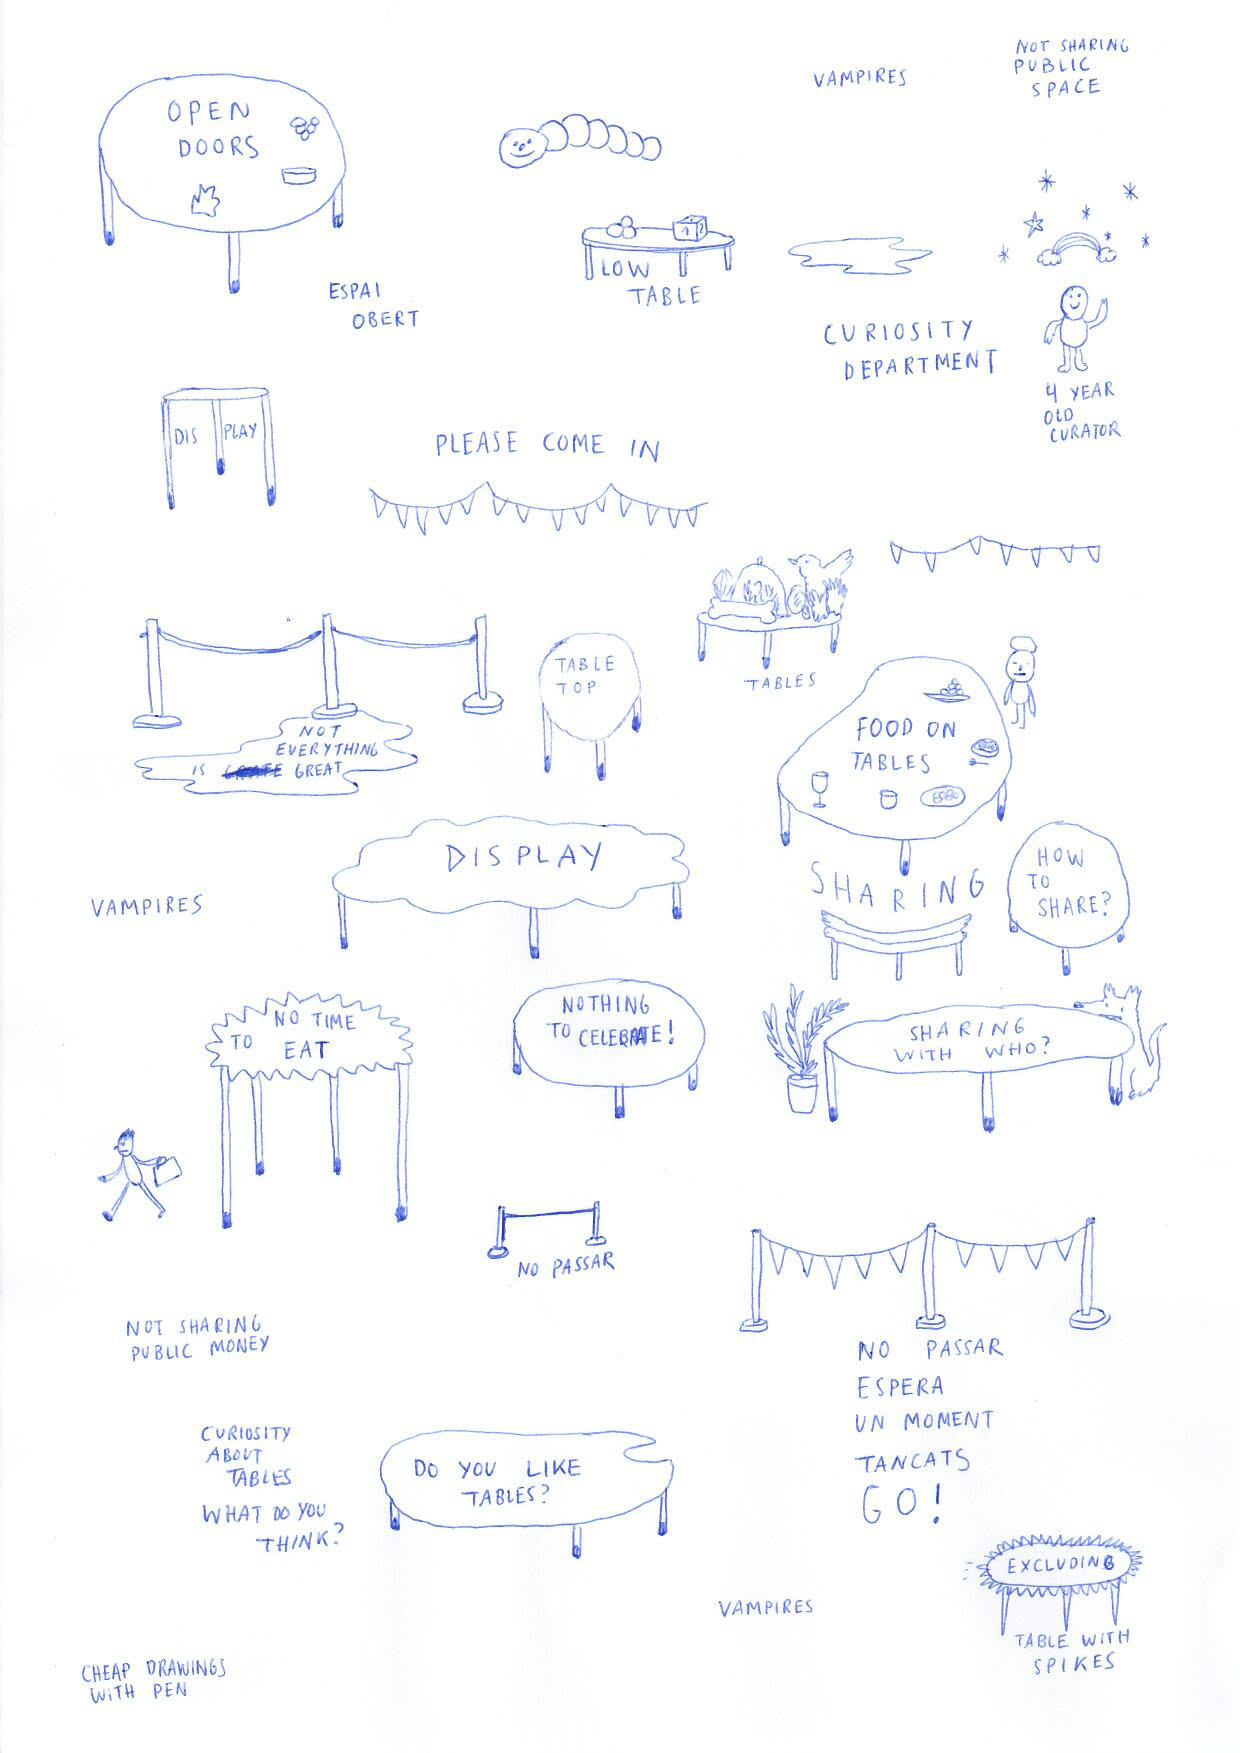 NOT SHARING
PUBLIC
SPACE
VAMPIRES
OPEN
DOORS
ESPAI
OBERT
1 2
LOW
TABLE
CURIOSITY
DEPARTMENT
4 YEAR
OLD
CURATOR
DIS PLAY
PLEASE COME IN
TABLES
TABLE
TOP
NOT
EVERYTHING
IS GREAT
FOOD ON
TABLES
DISPLAY
SHARING
HOW
TO
SHARE?
VAMPIRES
NO TIME
TO EAT
NOTHING
TO CELEBRATE!
SHARING
WITH WHO?
NO PASSAR
NOT SHARING
PUBLIC MONEY
NO PASSAR
ESPERA
UN MOMENT
TANCATS
GO!
CURIOSITY
ABOUT
TABLES
WHAT DO YOU
THINK?
DO YOU LIKE
TABLES?
EXCLUDING
TABLE WITH
SPIKES
VAMPIRES
CHEAP DRAWINGS
WITH PEN